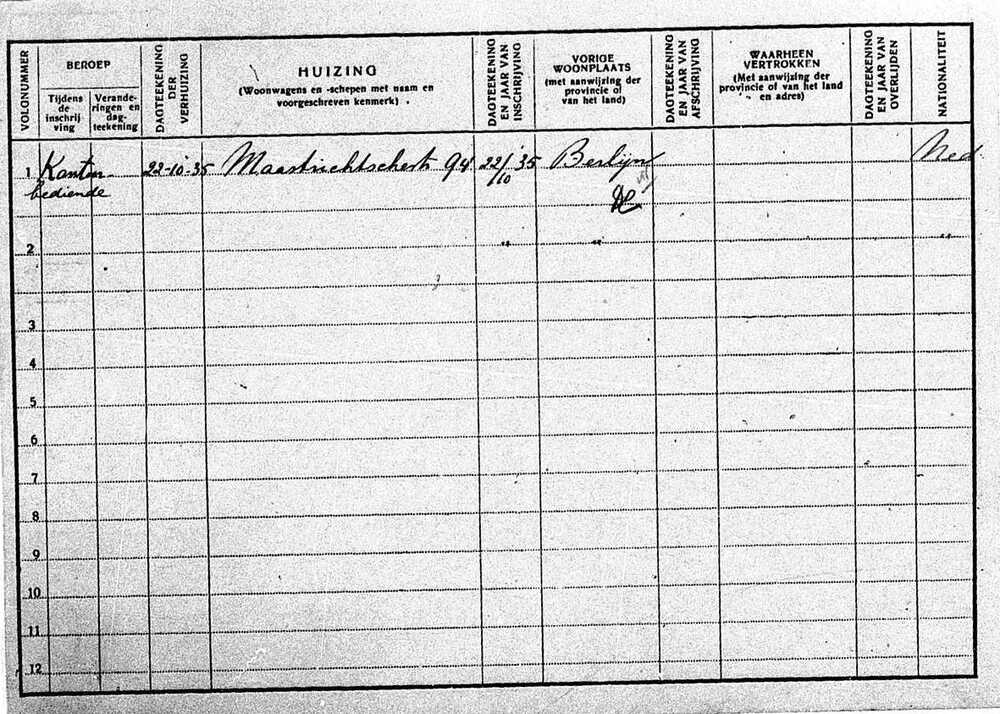 VOLGNUMMER
BEROEP
Tijdens de inschrijving
Tijdens
de
inschrij
ving
Verande-
ringen en
dag-
teekening
DAGTEEKENING
DER
VERHUIZING
HUIZING
(Woonwagens en -schepen met naam en
voorgeschreven kenmerk)
DAGTEEKENING
EN JAAR VAN
INSCHRIJVING
VORIGE
WOONPLAATS
(met aanwijzing der
provincie of
van het land)
DAGTEEKENING
EN JAAR VAN
AFSCHRIJVING
WAARHEEN
VERTROKKEN
(Met aanwijzing der
provincie of van het land
en adres)
DAGTEEKENING
EN JAAR VAN
OVERLIJDEN
NATIONALITEIT
1 Kantoor- 22-10-'35 Maastrichtschestr 94 22/10 '35 Berlijn Ned
bediende
2 " " "
3
4
5
6
7
8
9
10
11
12